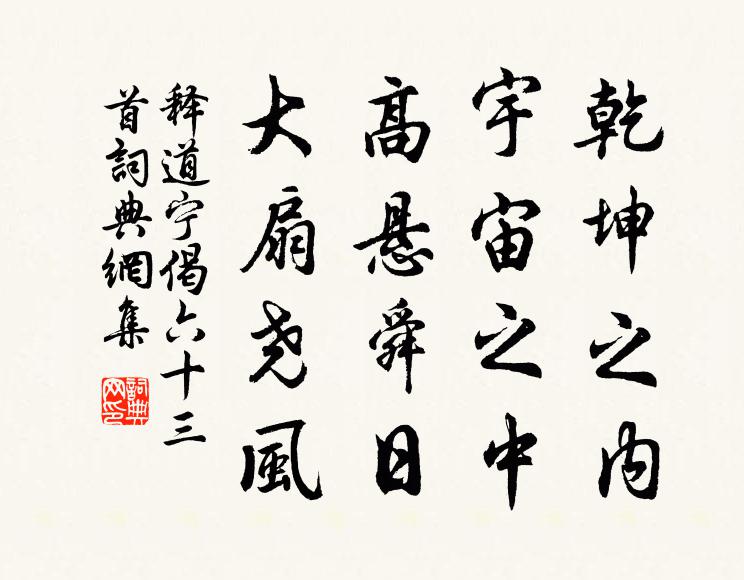 乾坤之内
宇宙之中
高悬舜日
大扇尧風
释道宁偈六十三
首詞典網集
詞典网印